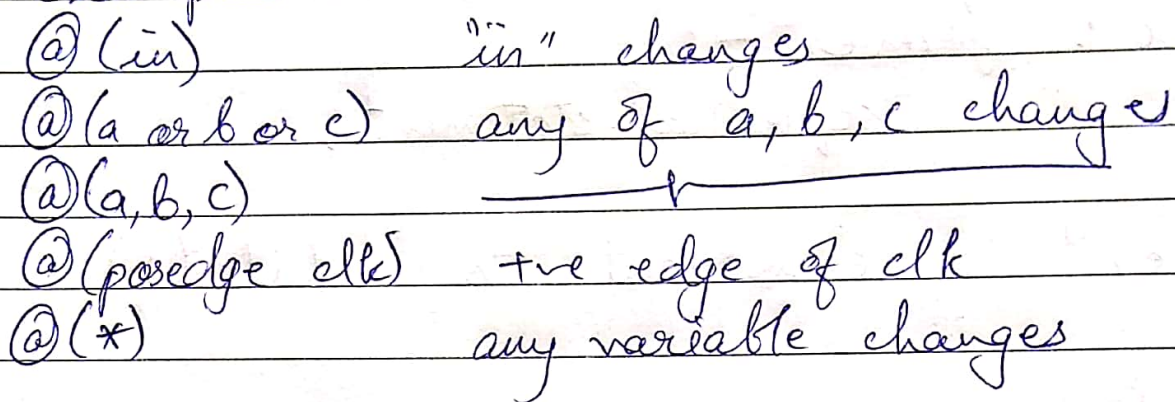 @ (in) "in" changes
@ (a or b or c) any of a, b, c changes
@ (a, b, c)
@ (posedge clk) +ve edge of clk
@ (*) any variable changes